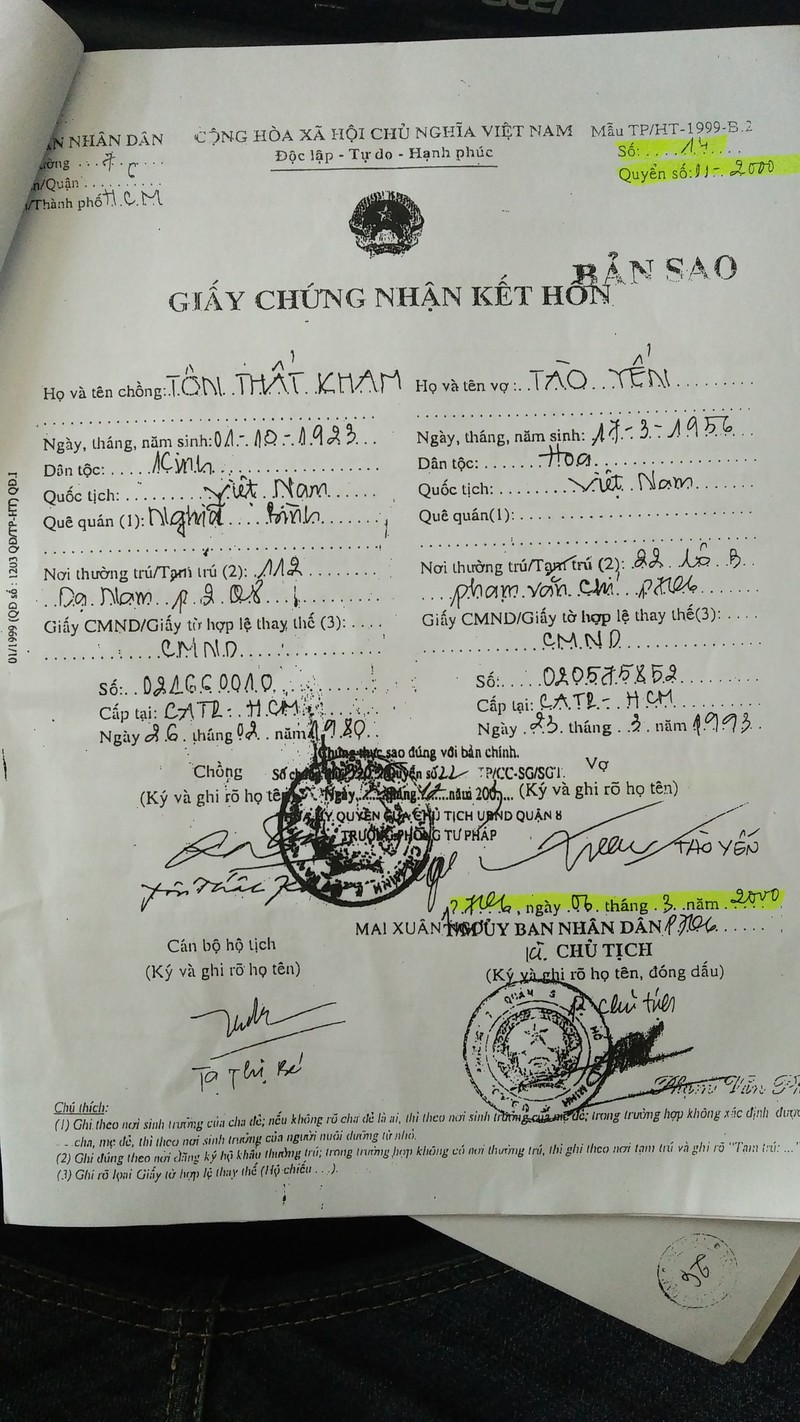 ÂN NHÂN DÂN
CỘNG HÒA XÃ HỘI CHỦ NGHĨA VIỆT NAM
Mẫu TP/HT-1999-B.2
ường ... 7 ...
Độc lập - Tự do - Hạnh phúc
Số: .... 14 ....
n/Quận ......
Quyển số: 01 - 2000
/Thành phố H.C.M
BẢN SAO
GIẤY CHỨNG NHẬN KẾT HÔN
Họ và tên chồng: TÔN THẤT KHAM
Ngày, tháng, năm sinh: 01-10-1923
Dân tộc: Kinh
Quốc tịch: Việt Nam
Quê quán (1): Nghĩa Bình
Nơi thường trú/Tạm trú (2): 112
Dạ Nam p. 2 Q8
Giấy CMND/Giấy tờ hợp lệ thay thế (3):
CMND
Số: 021660010
Cấp tại: CATP - HCM
Ngày 26 tháng 02 năm 1980
Chồng
(Ký và ghi rõ họ tên)
Họ và tên vợ: TÀO YẾN
Ngày, tháng, năm sinh: 17-3-1956
Dân tộc: Hoa
Quốc tịch: Việt Nam
Quê quán(1):
Nơi thường trú/Tạm trú (2): 22 lô B
phạm văn Chí P7Q6
Giấy CMND/Giấy tờ hợp lệ thay thế(3):
CMND
Số: 020575852
Cấp tại: CATP - HCM
Ngày 23 tháng 3 năm 1993
Vợ
(Ký và ghi rõ họ tên)
TÀO YẾN
Chứng thực sao đúng với bản chính.
Quyển số 22 TP/CC-SG/SGT
Ngày tháng năm 200...
KÝ QUYỀN CỦA CHỦ TỊCH UBND QUẬN 8
TRƯỞNG PHÒNG TƯ PHÁP
MAI XUÂN
P7Q6, ngày 06 tháng 3 năm 2000
TM ỦY BAN NHÂN DÂN P7Q6
CHỦ TỊCH
(Ký và ghi rõ họ tên, đóng dấu)
Chủ tịch
Phạm Văn
Cán bộ hộ tịch
(Ký và ghi rõ họ tên)
Tạ Thị Bé
Chú thích:
(1) Ghi theo nơi sinh trưởng của cha đẻ; nếu không rõ cha đẻ là ai, thì theo nơi sinh trưởng của mẹ đẻ; trong trường hợp không xác định được
cha, mẹ đẻ, thì theo nơi sinh trưởng của người nuôi dưỡng từ nhỏ.
(2) Ghi đúng theo nơi đăng ký hộ khẩu thường trú; trong trường hợp không có nơi thường trú, thì ghi theo nơi tạm trú và ghi rõ "Tạm trú: ..."
(3) Ghi rõ loại Giấy tờ hợp lệ thay thế (Hộ chiếu ...).
01/1999 (QĐ số : 1203 QĐ/TP-HT) QĐ.1